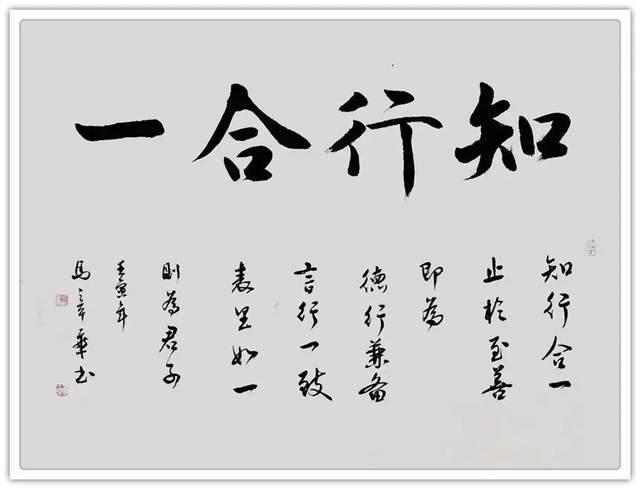 知行合一
知行合一
止於至善
即為
德行兼备
言行一致
表里如一
則為君子
壬寅年
馬章華书